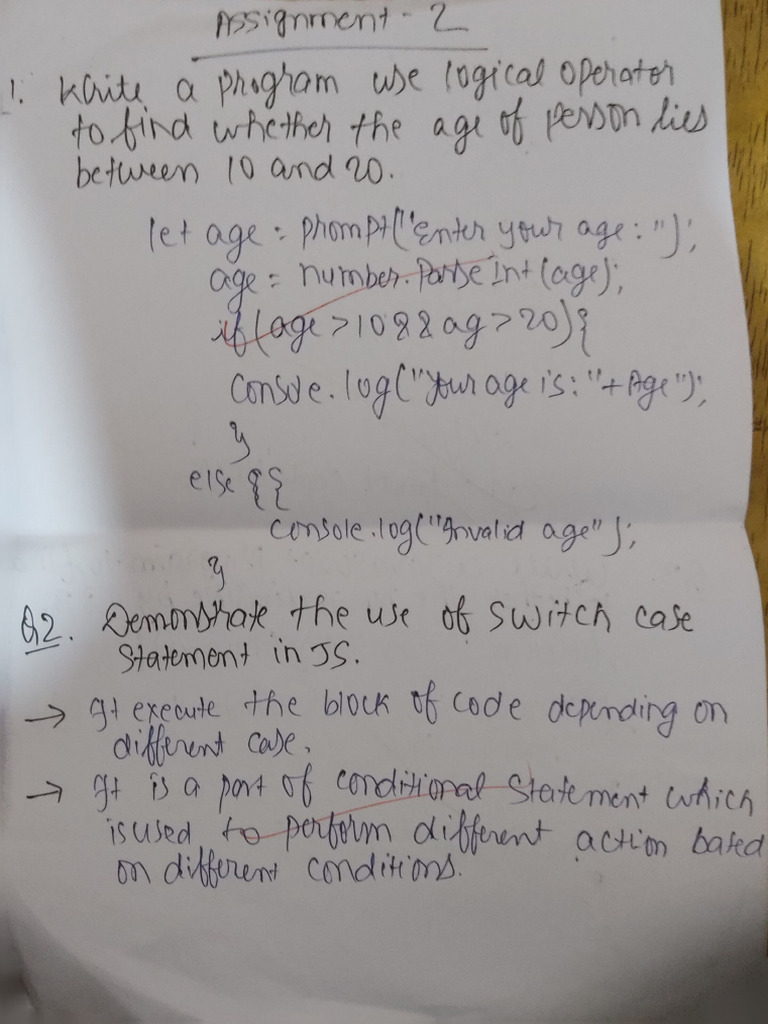 Assignment - 2
1. Write a program use logical operator
to find whether the age of person lies
between 10 and 20.
let age = prompt("Enter your age : ");
age = number.Parse Int (age);
if (age > 10 && ag > 20) {
Console.log("Your age is: "+ Age");
}
else {{
console.log("Invalid age");
}
Q2. Demonstrate the use of switch case
Statement in JS.
→ It execute the block of code depending on
different case.
→ It is a part of conditional Statement which
is used to perform different action based
on different conditions.